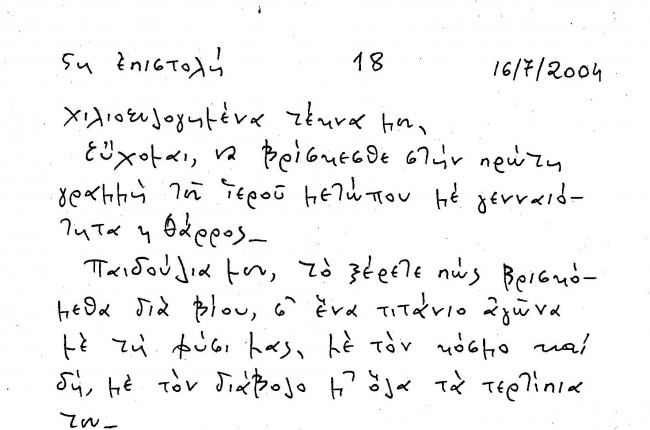 5η Ἐπιστολή 18 16/7/2004
χιλιοευλογημένα τέκνα μου,
εὔχομαι, νὰ βρίσκεσθε στήν πρώτη
γραμμή τοῦ ἱεροῦ μετώπου μέ γενναιό-
τητα κ θάρρος_
Παιδούλια μου, τὸ ξέρετε πώς βρισκό-
μεθα διὰ βίου, σ' ἕνα τιτάνιο ἀγῶνα
μὲ τή φύσι μας, μὲ τὸν κόσμο καί
δή, μὲ τὸν διάβολο μ' ὅλα τὰ τερτίπια
του_